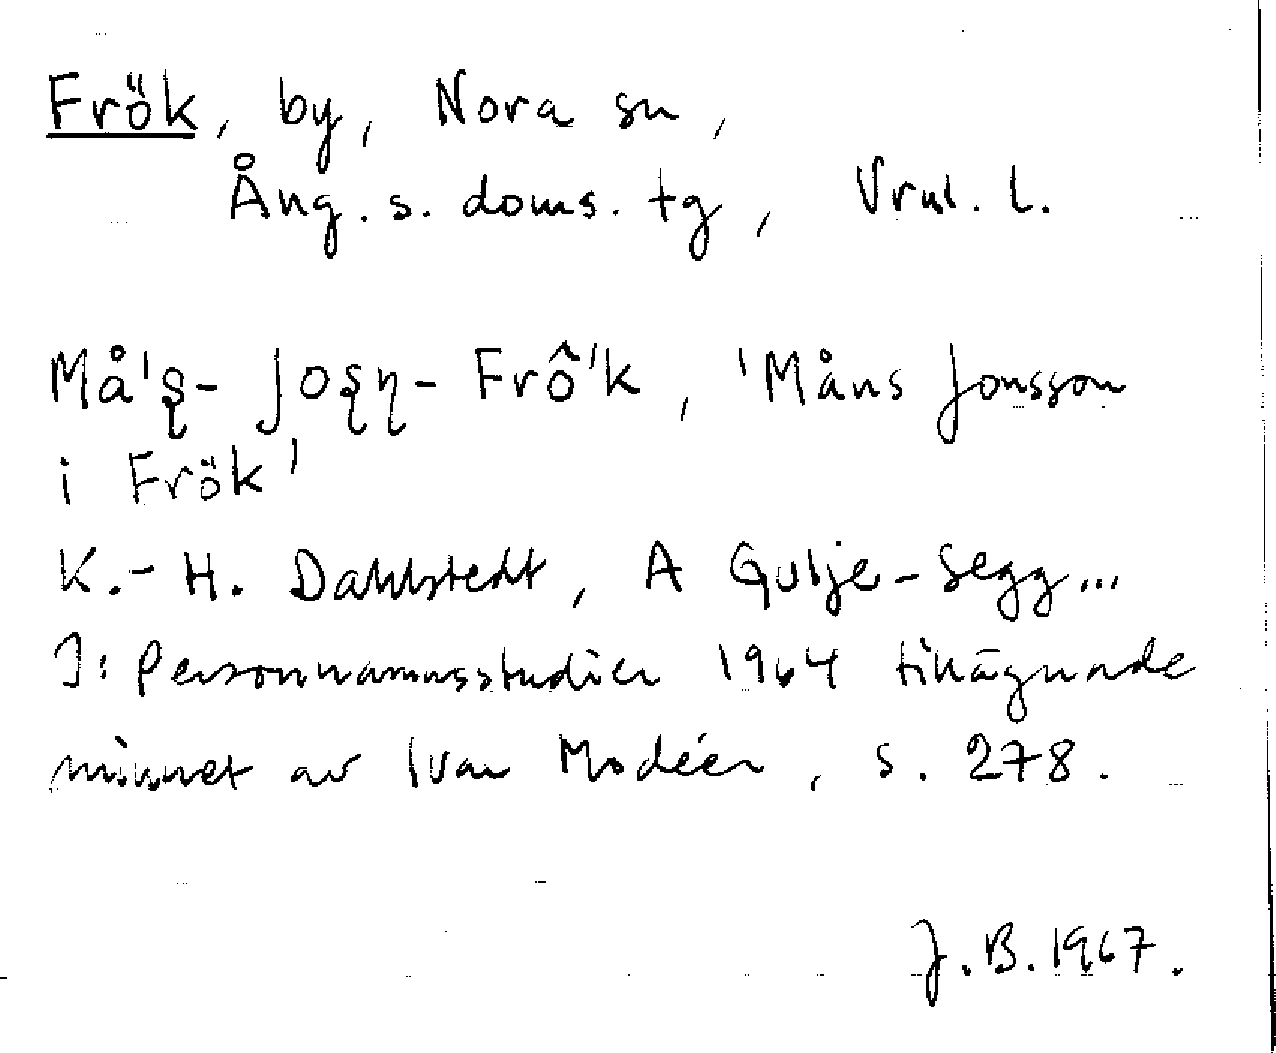 Frök, by, Nora sn,
Ång. s. doms. tg, Vrnl. l.
Må'ʂ- Joʂɳ- Frô'k, 'Måns Jonsson
i Frök'
K.-H. Dahlstedt, A Gulje-Segg...
I: Personnamnsstudier 1964 tillägnade
minnet av Ivar Modéer, s. 278.
J.B. 1967.